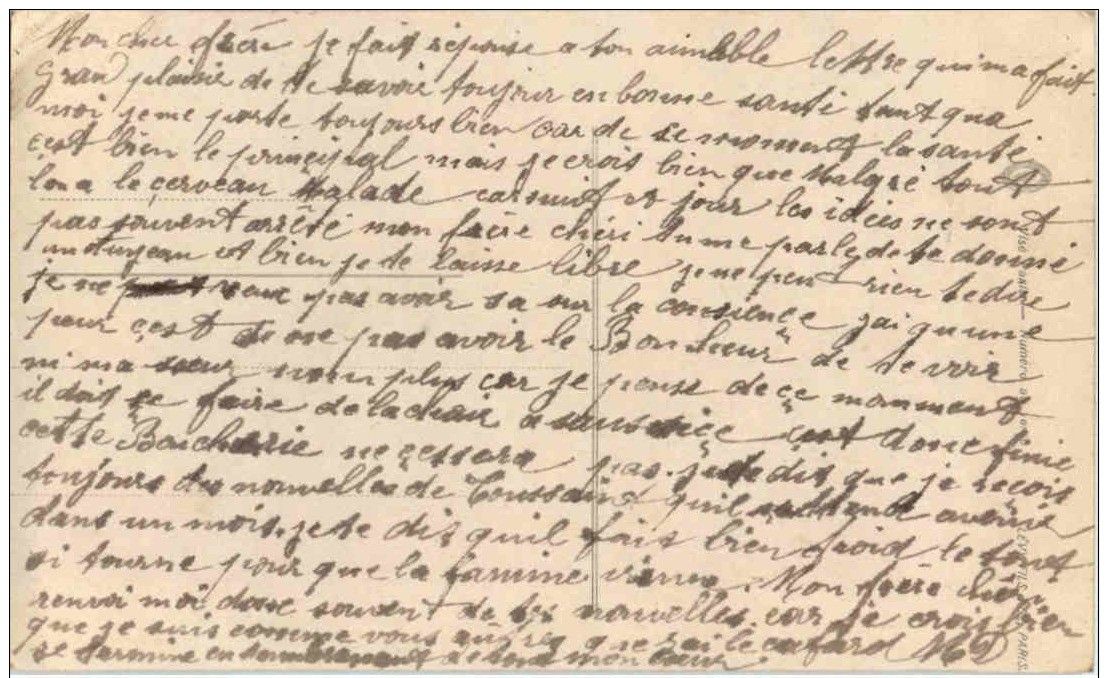 Mon cher frère je fait réponse a ton aimable lettre qui ma fait
Grand plaisir de te savoir toujour en bonne santé tant qua
moi je me porte toujours bien car de se moment la santé
çest bien le principal mais je crois bien que malgré tout
lon a le çerveau malade car nuit et jour les idées ne sont
pas souvent arrêté mon frère chéri tu me parle de te donné
un et bien je te laisse libre je ne peut rien te dire
je ne veux pas avoir sa sur la consience jai qu une
peur çest de ne pas avoir le Bonheur de te voir
ni ma sœur non plus car je pense de çe momment
il doit se faire de la chair a çest donc finie
cette Boucherie ne çessera pas. je te dis que je reçois
toujours des nouvelles de Toussaint quil avenir
dans un mois. je te dis quil fais bien froid le tout
si tourne pour que la famine vienne. Mon frère chéri
renvoi moi donc souvent de tes nouvelles car je crois bien
que je suis comme vous autres que jai le cafard MD
je termine en de tout mon cœur
PARIS